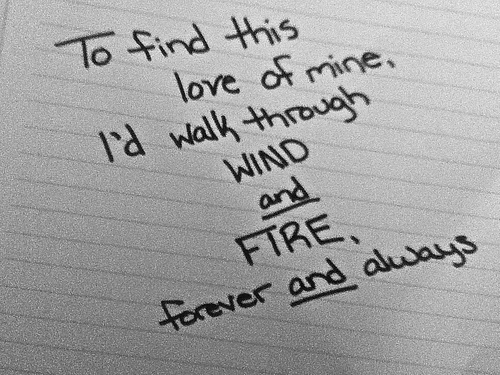 To find this
love of mine,
I'd walk through
WIND
and
FIRE,
forever and always